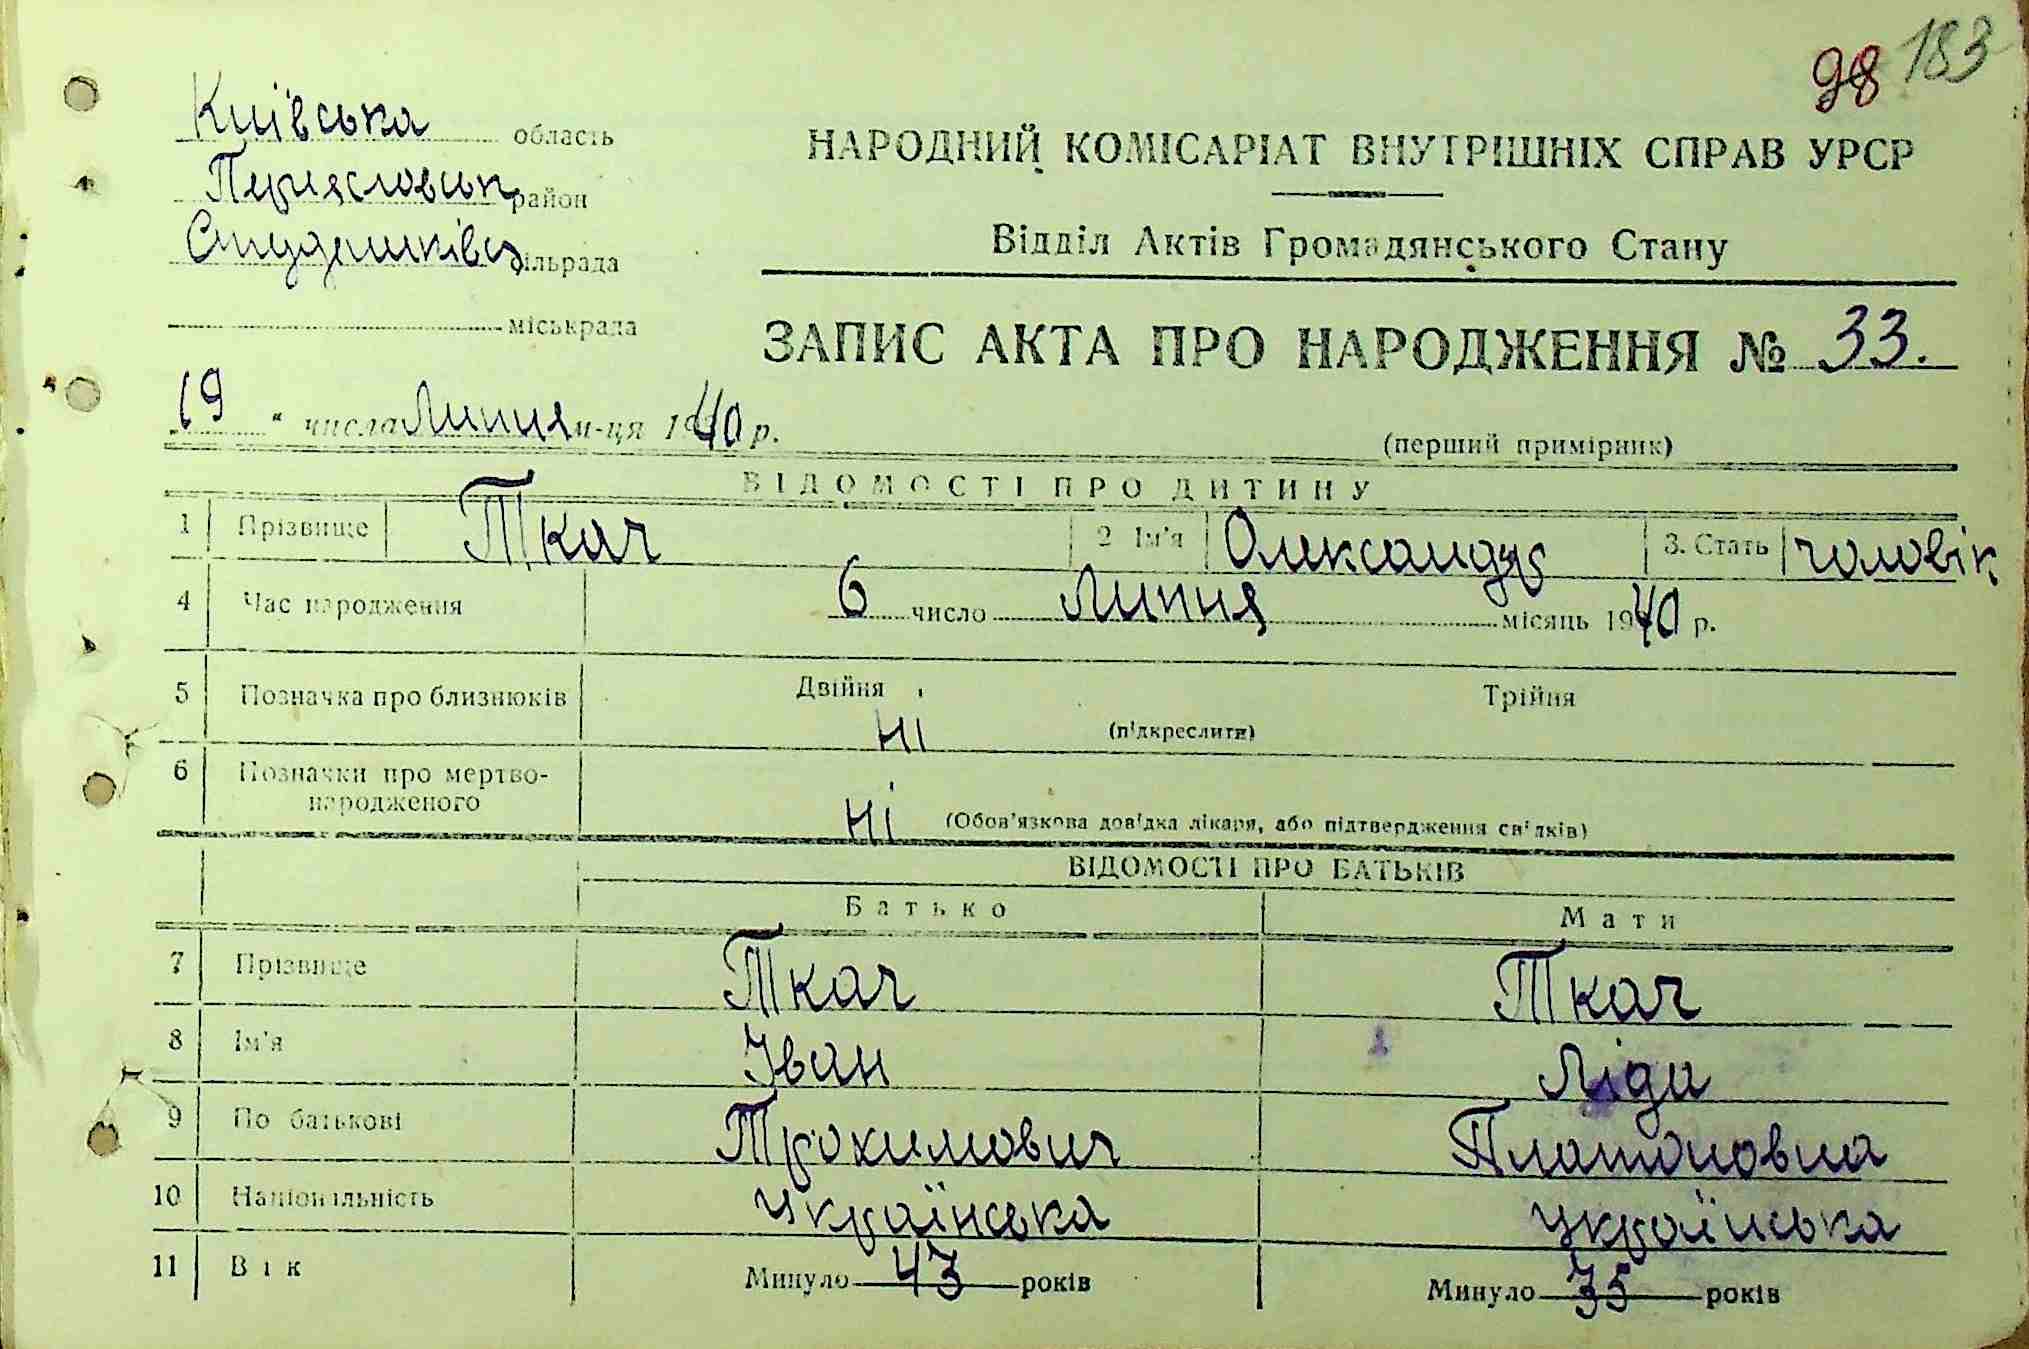 98 183
Київська область
Переяславськ район
Студениківс сільрада
міськрада
НАРОДНИЙ КОМІСАРІАТ ВНУТРІШНІХ СПРАВ УРСР
Відділ Актів Громадянського Стану
ЗАПИС АКТА ПРО НАРОДЖЕННЯ № 33.
19 " числа Липня м-ця 1940 р.
(перший примірник)
ВІДОМОСТІ ПРО ДИТИНУ
1 Прізвище Ткач 2 Ім'я Олександр 3. Стать чоловік
4 Час народження 6 число Липня місяць 1940 р.
5 Позначка про близнюків Двійня Трійня
ні (підкреслити)
6 Позначки про мертво-
народженого ні (Обов'язкова довідка лікаря, або підтвердження свідків)
ВІДОМОСТІ ПРО БАТЬКІВ
Батько Мати
7 Прізвище Ткач Ткач
8 Ім'я Іван Ліда
9 По батькові Трохимович Платоновна
10 Національність Українська Українська
11 Вік Минуло 43 років Минуло 35 років